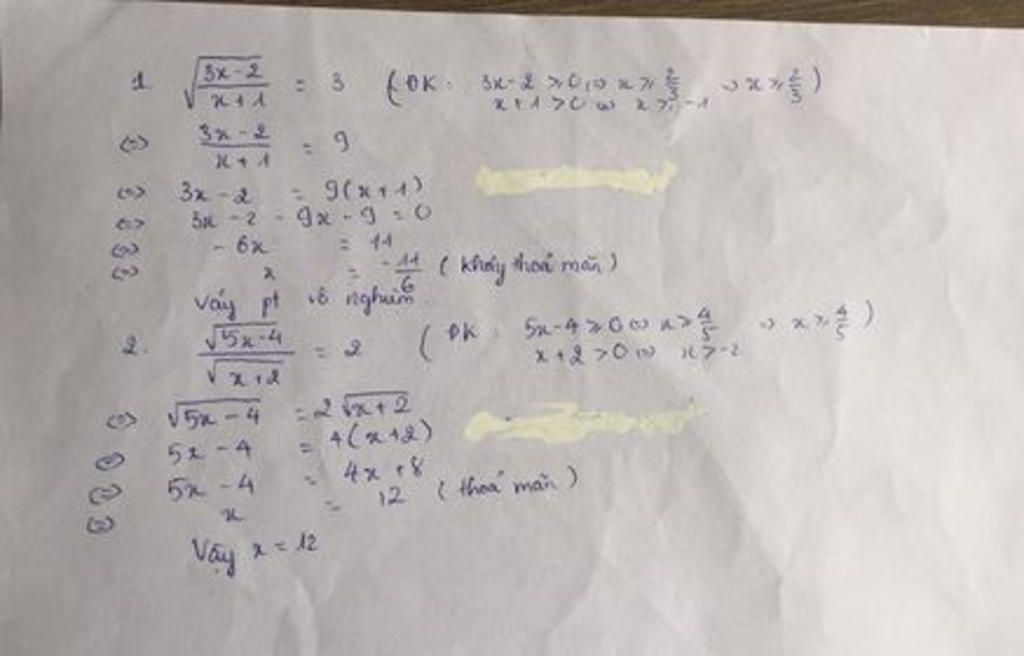 1 √((3x-2)/(x+1)) = 3 (ĐK: 3x-2 ≥ 0 ⇔ x ≥ 2/3 ⇒ x ≥ 2/3)
x+1 > 0 ⇔ x > -1
⇔ (3x-2)/(x+1) = 9
⇔ 3x-2 = 9(x+1)
⇔ 3x-2-9x-9 = 0
⇔ -6x = 11
⇔ x = -11/6 (không thoả mãn)
Vậy pt vô nghiệm.
2. √(5x-4)/√(x+2) = 2 (ĐK: 5x-4 ≥ 0 ⇔ x ≥ 4/5 ⇒ x ≥ 4/5)
x+2 > 0 ⇔ x > -2
⇔ √(5x-4) = 2√(x+2)
⇔ 5x-4 = 4(x+2)
⇔ 5x-4 = 4x+8
⇔ x = 12 (thoả mãn)
Vậy x = 12